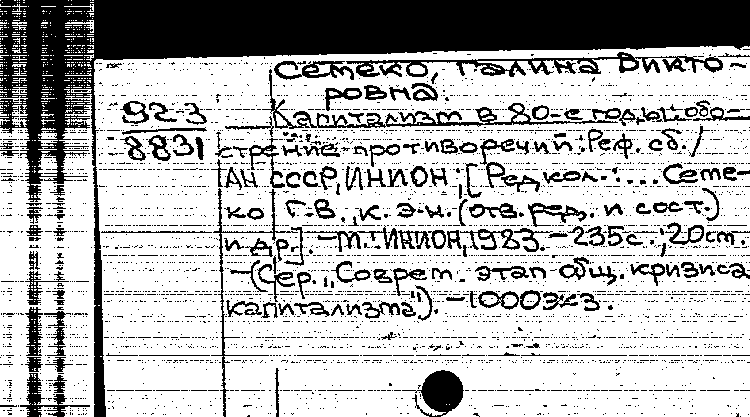 Семеко, Галина Викто-
ровна.
92-3
8831
Капитализм в 80-е годы: обо-
стрение противоречий: Реф. сб. /
АН СССР, ИНИОН; [Редкол.: ... Семе-
ко Г.В., к. э. н. (отв. ред. и сост.)
и др.]. - М.: ИНИОН, 1983. - 235с.; 20см.
- (Сер. "Соврем. этап общ. кризиса
капитализма"). - 1000экз.